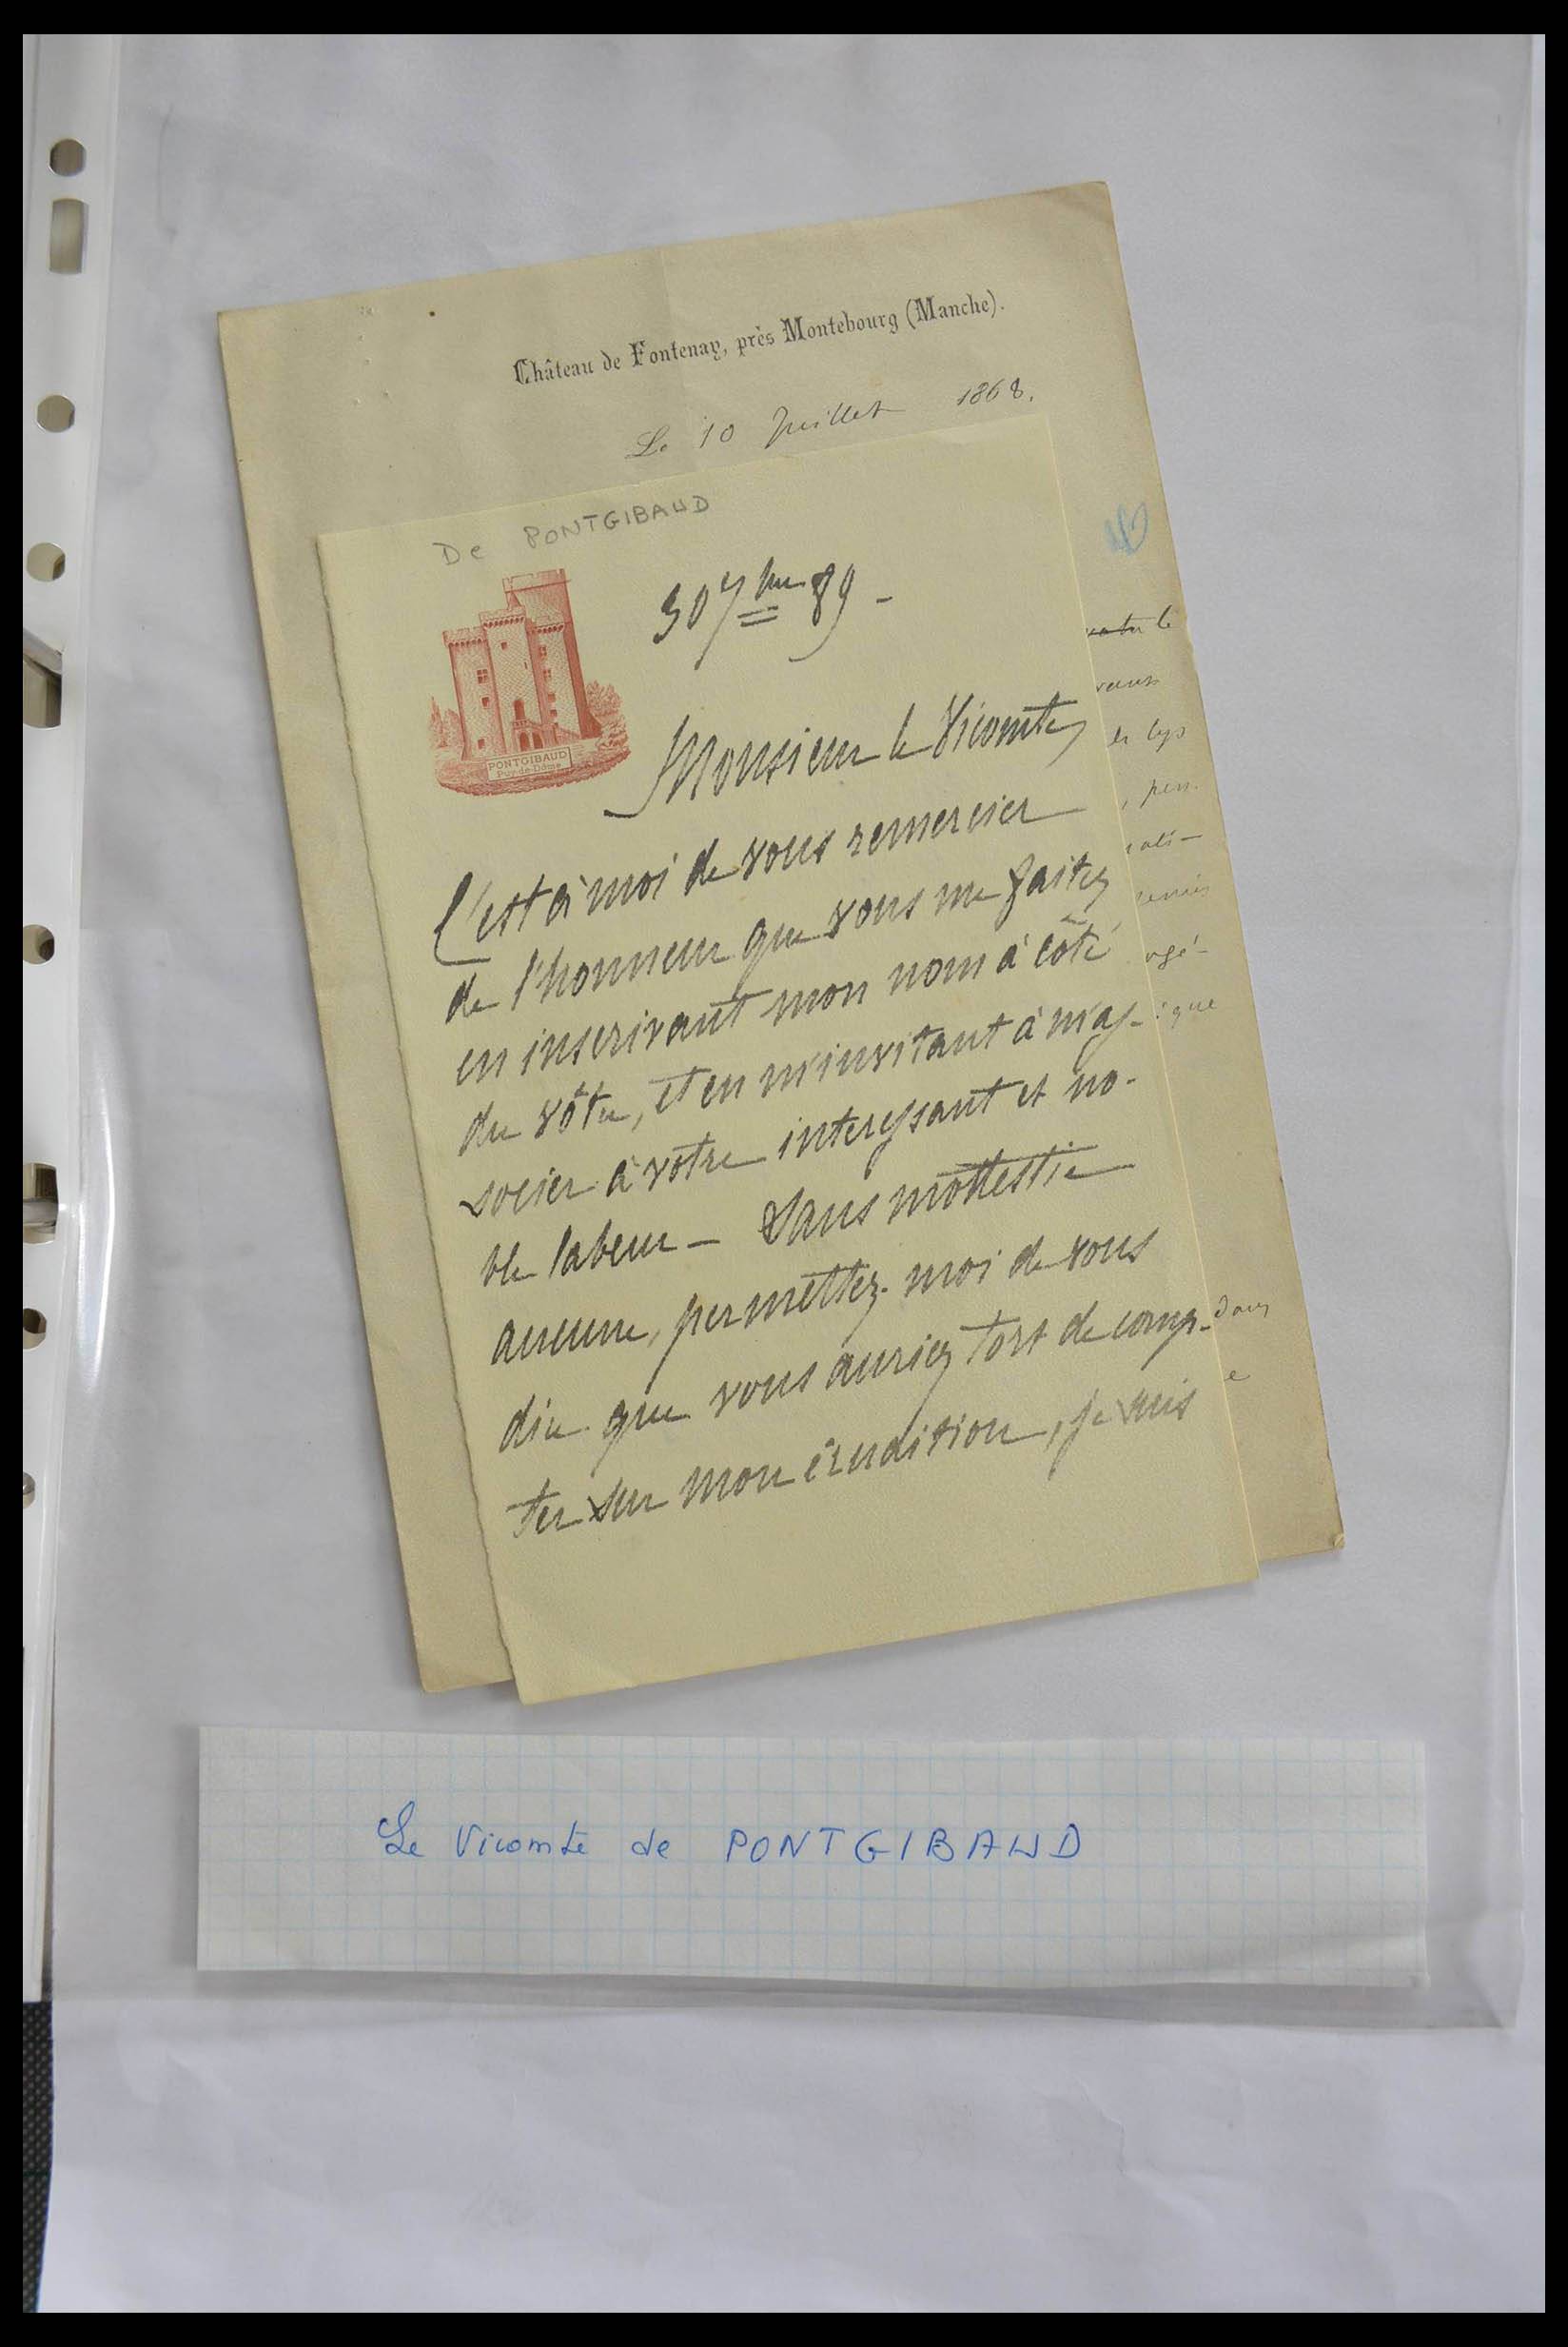 Château de Fontenay, près Montebourg (Manche).
Le 10 Juillet 1868.
De PONTGIBAUD
PONTGIBAUD
Puy-de-Dôme
30 7bre 89 -
Monsieur le Vicomte
C'est à moi de vous remercier
de l'honneur que vous me faites
en inscrivant mon nom à côté
du vôtre, et en m'invitant à m'as-
socier à votre interessant et no-
ble labeur - Sans modestie
aucune, permettez-moi de vous
dire que vous auriez tort de comp-
ter sur mon érudition, je suis
le
les lys
dans
Le Vicomte de PONTGIBAUD